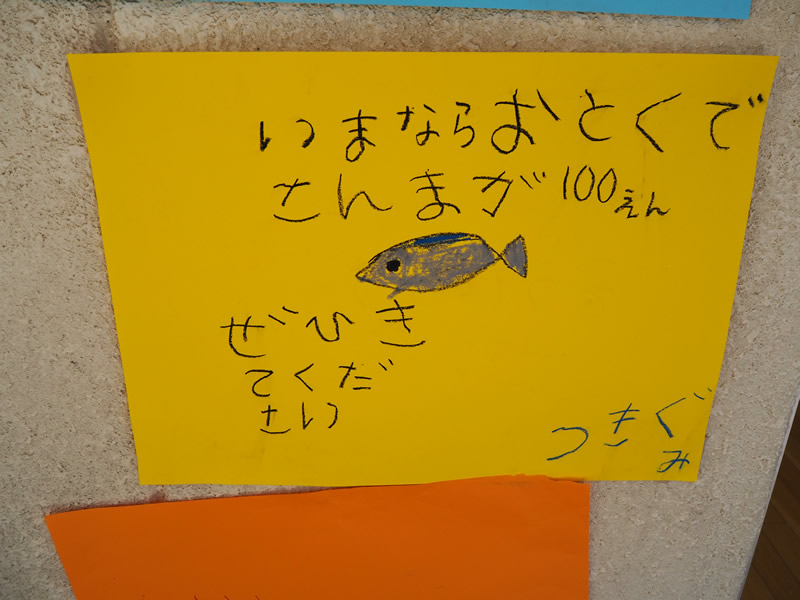 いまならおとくで
さんまが100えん
ぜひき
てくだ
さい
つきぐ
み